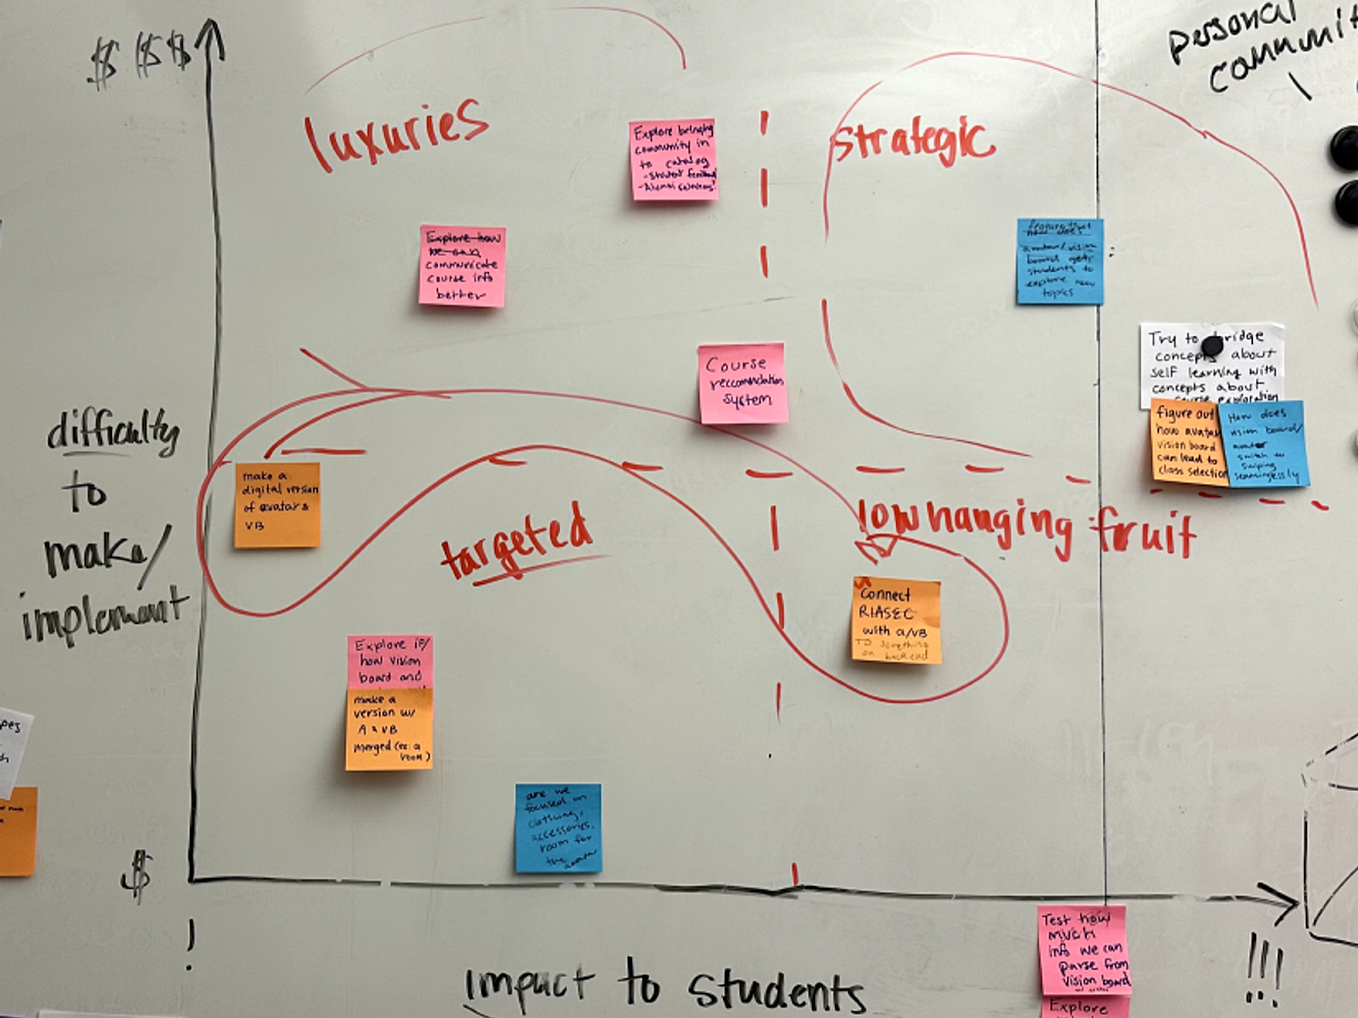 $ $$
luxuries
strategic
personal
Explore bringing
community in
to catalog
- student feedback
Explore how
we can
communicate
course info
better
feature that
how does
avatar/vision
board gets
students to
explore new
topics
Course
reccomendation
system
Try to bridge
concepts about
self learning with
concepts about
course exploration
figure out
how avatar
vision board
can lead to
class selection
How does
vision board/
avatar
switch to
swiping
seamlessly
difficulty
to
make/
implement
make a
digital version
of avatar &
VB
targeted
low hanging fruit
Connect
RIASEC
with a/VB
TO something
on backend
Explore if/
how vision
board and
make a
version w/
A & VB
merged (ex: a
room)
are we
focused on
clothing,
accessories,
room for
the avatar
$
!
impact to students
!!!
Test how
much
info we can
parse from
vision board
Explore